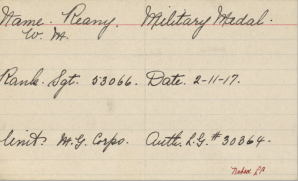 Name. Reany, Military Medal.
W. M.
Rank. Sgt. 53066. Date. 2-11-17.
Unit: M.G. Corps. Auth. L.G. # 30364.